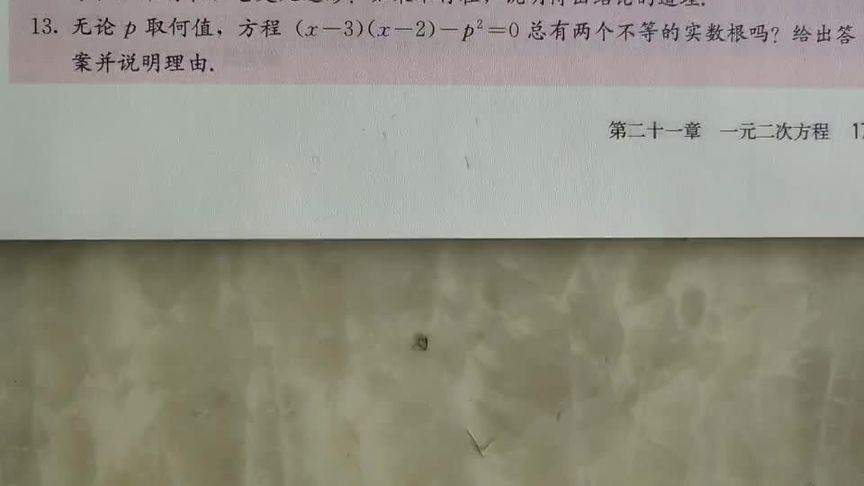 13. 无论 p 取何值，方程 (x－3)(x－2)－p²＝0 总有两个不等的实数根吗？给出答
案并说明理由.
第二十一章 一元二次方程 17